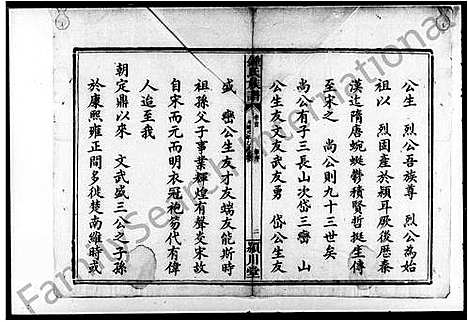 公生 烈公吾族尊 烈公為始
祖以 烈固產於潁耳厥後歷秦
漢迄隋唐蜿蜒鬱積賢哲挺生傳
至宋之 尚公則九十三世矣
尚公有子三長山次岱三巒 山
公生友文友武友勇 岱公生友
鍾氏族譜
二
潁川堂
盛 巒公生友才友端友能斯時
祖孫父子事業輝煌有聲炎宋故
自宋而元而明衣冠袍笏代有偉
人迨至我
朝定鼎以來 文武盛三公之子孫
於康熙雍正間多徙楚南維時或
FamilySearch International